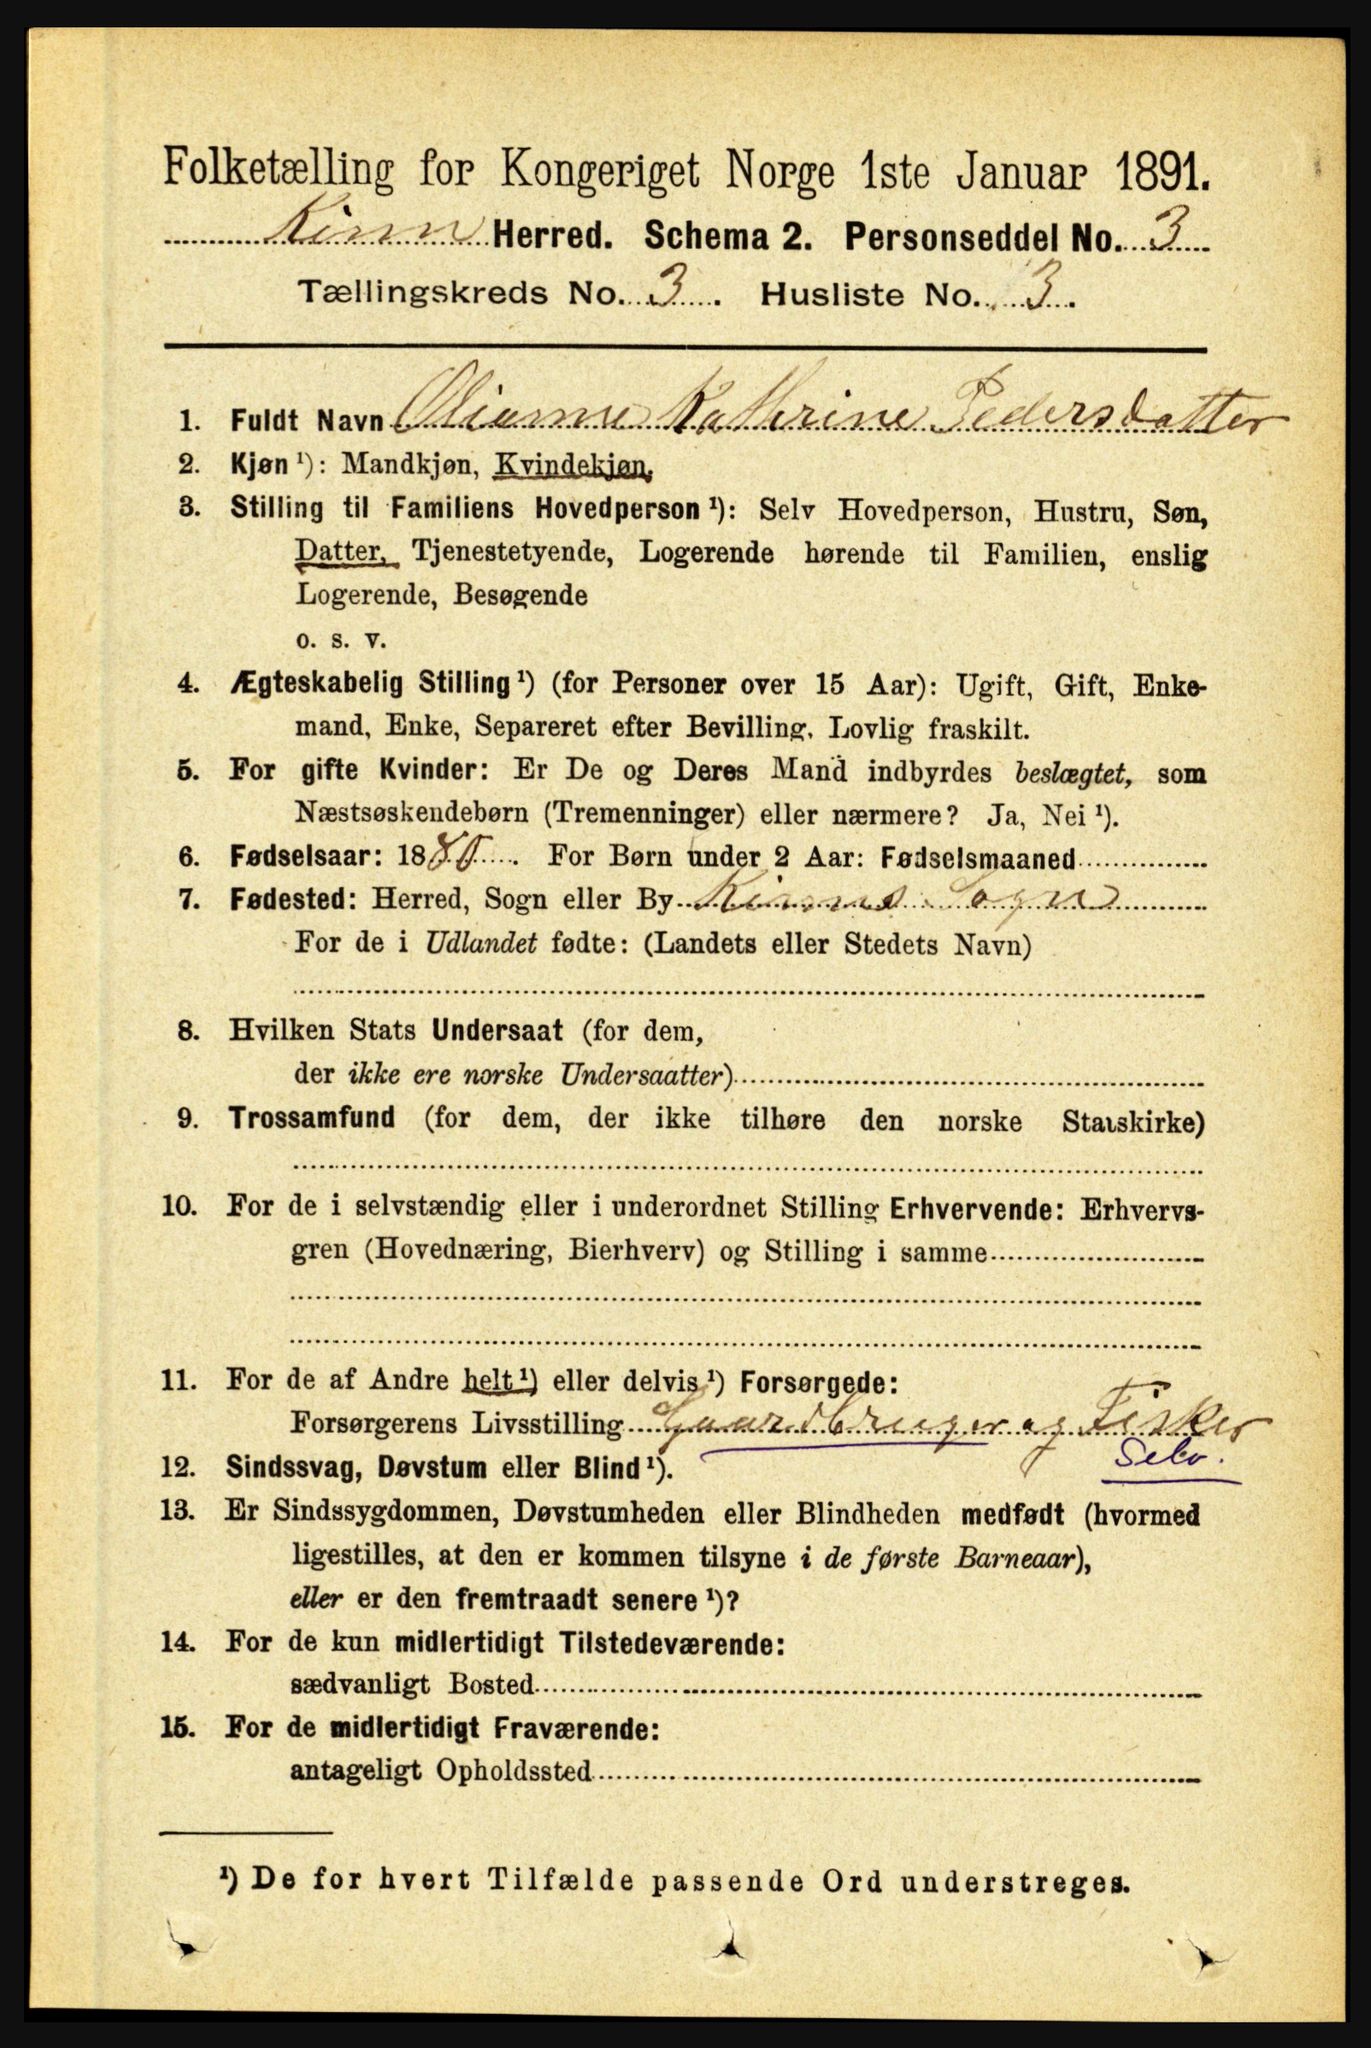 Folketælling for Kongeriget Norge 1ste Januar 1891.
Kinn Herred. Schema 2. Personseddel No. 3
Tællingskreds No. 3. Husliste No. 3.
1. Fuldt Navn Kathrine Pedersdatter
2. Kjøn¹): Mandkjøn, Kvindekjøn.
3. Stilling til Familiens Hovedperson¹): Selv Hovedperson, Hustru, Søn,
Datter, Tjenestetyende, Logerende hørende til Familien, enslig
Logerende, Besøgende
o. s. v.
4. Ægteskabelig Stilling¹) (for Personer over 15 Aar): Ugift, Gift, Enke-
mand, Enke, Separeret efter Bevilling, Lovlig fraskilt.
5. For gifte Kvinder: Er De og Deres Mand indbyrdes beslægtet, som
Næstsøskendebørn (Tremenninger) eller nærmere? Ja, Nei¹).
6. Fødselsaar: 1880. For Børn under 2 Aar: Fødselsmaaned
7. Fødested: Herred, Sogn eller By Kinns Sogn
For de i Udlandet fødte: (Landets eller Stedets Navn)
8. Hvilken Stats Undersaat (for dem,
der ikke ere norske Undersaatter)
9. Trossamfund (for dem, der ikke tilhøre den norske Statskirke)
10. For de i selvstændig eller i underordnet Stilling Erhvervende: Erhvervs-
gren (Hovednæring, Bierhverv) og Stilling i samme
11. For de af Andre helt¹) eller delvis¹) Forsørgede:
Forsørgerens Livsstilling Gaardbruger og Fisker
Selv.
12. Sindssvag, Døvstum eller Blind¹).
13. Er Sindssygdommen, Døvstumheden eller Blindheden medfødt (hvormed
ligestilles, at den er kommen tilsyne i de første Barneaar),
eller er den fremtraadt senere¹)?
14. For de kun midlertidigt Tilstedeværende:
sædvanligt Bosted
15. For de midlertidigt Fraværende:
antageligt Opholdssted
¹) De for hvert Tilfælde passende Ord understreges.